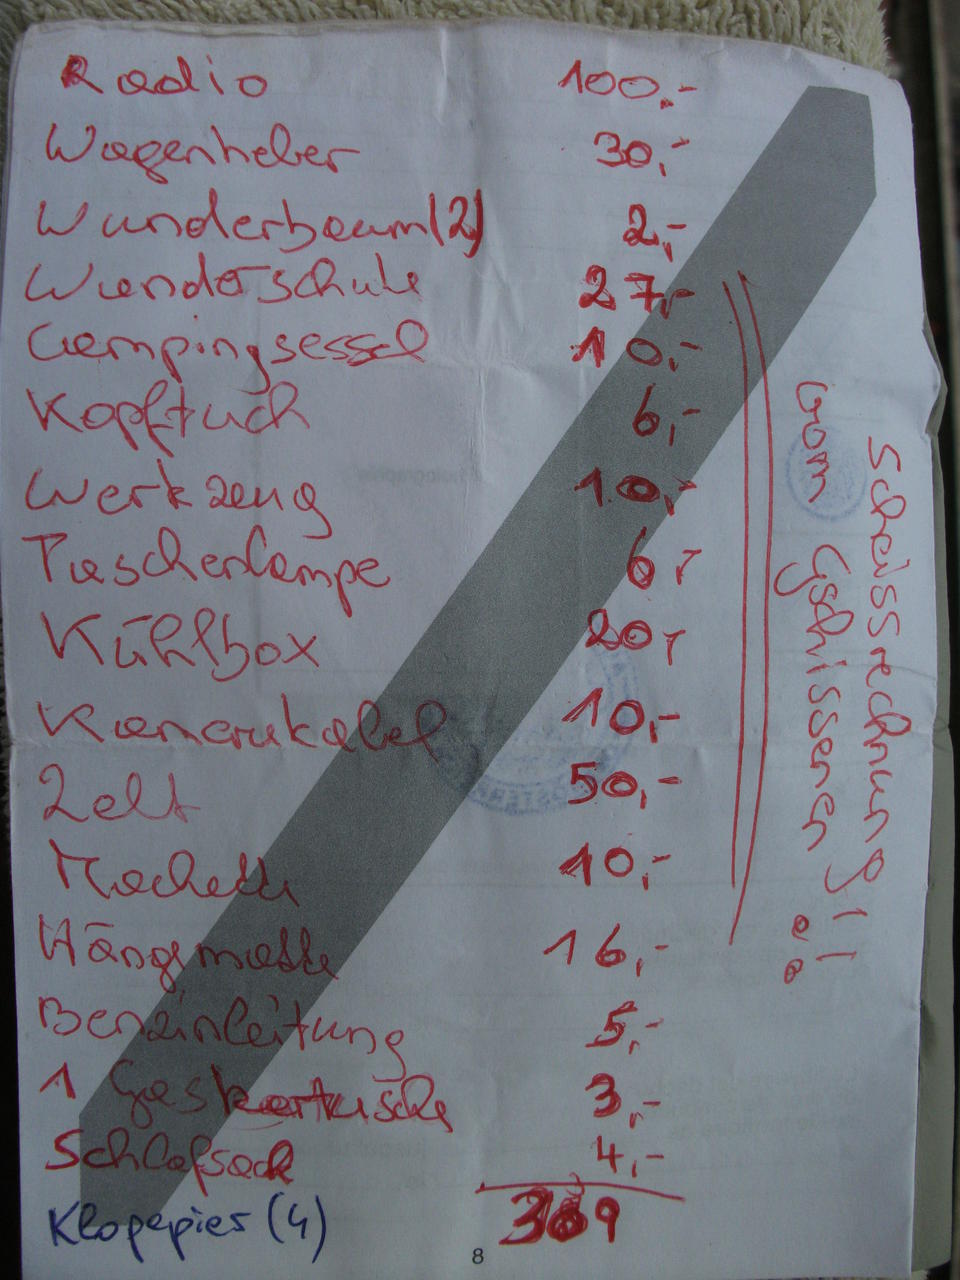 Radio 100,-
Wagenheber 30,-
Wunderbaum (2) 2,-
Wanderschuhe 27,-
Campingsessel 10,-
Kopftuch 6,-
Werkzeug 10,-
Taschenlampe 6,-
Kühlbox 20,-
Kamerakabel 10,-
Zelt 50,-
Machete 10,-
Hängematte 16,-
Benzinleitung 5,-
1 Gaskartusche 3,-
Schlafsack 4,-
309
Klopapier (4)
8
Scheissrechnung!!
Gschissenen